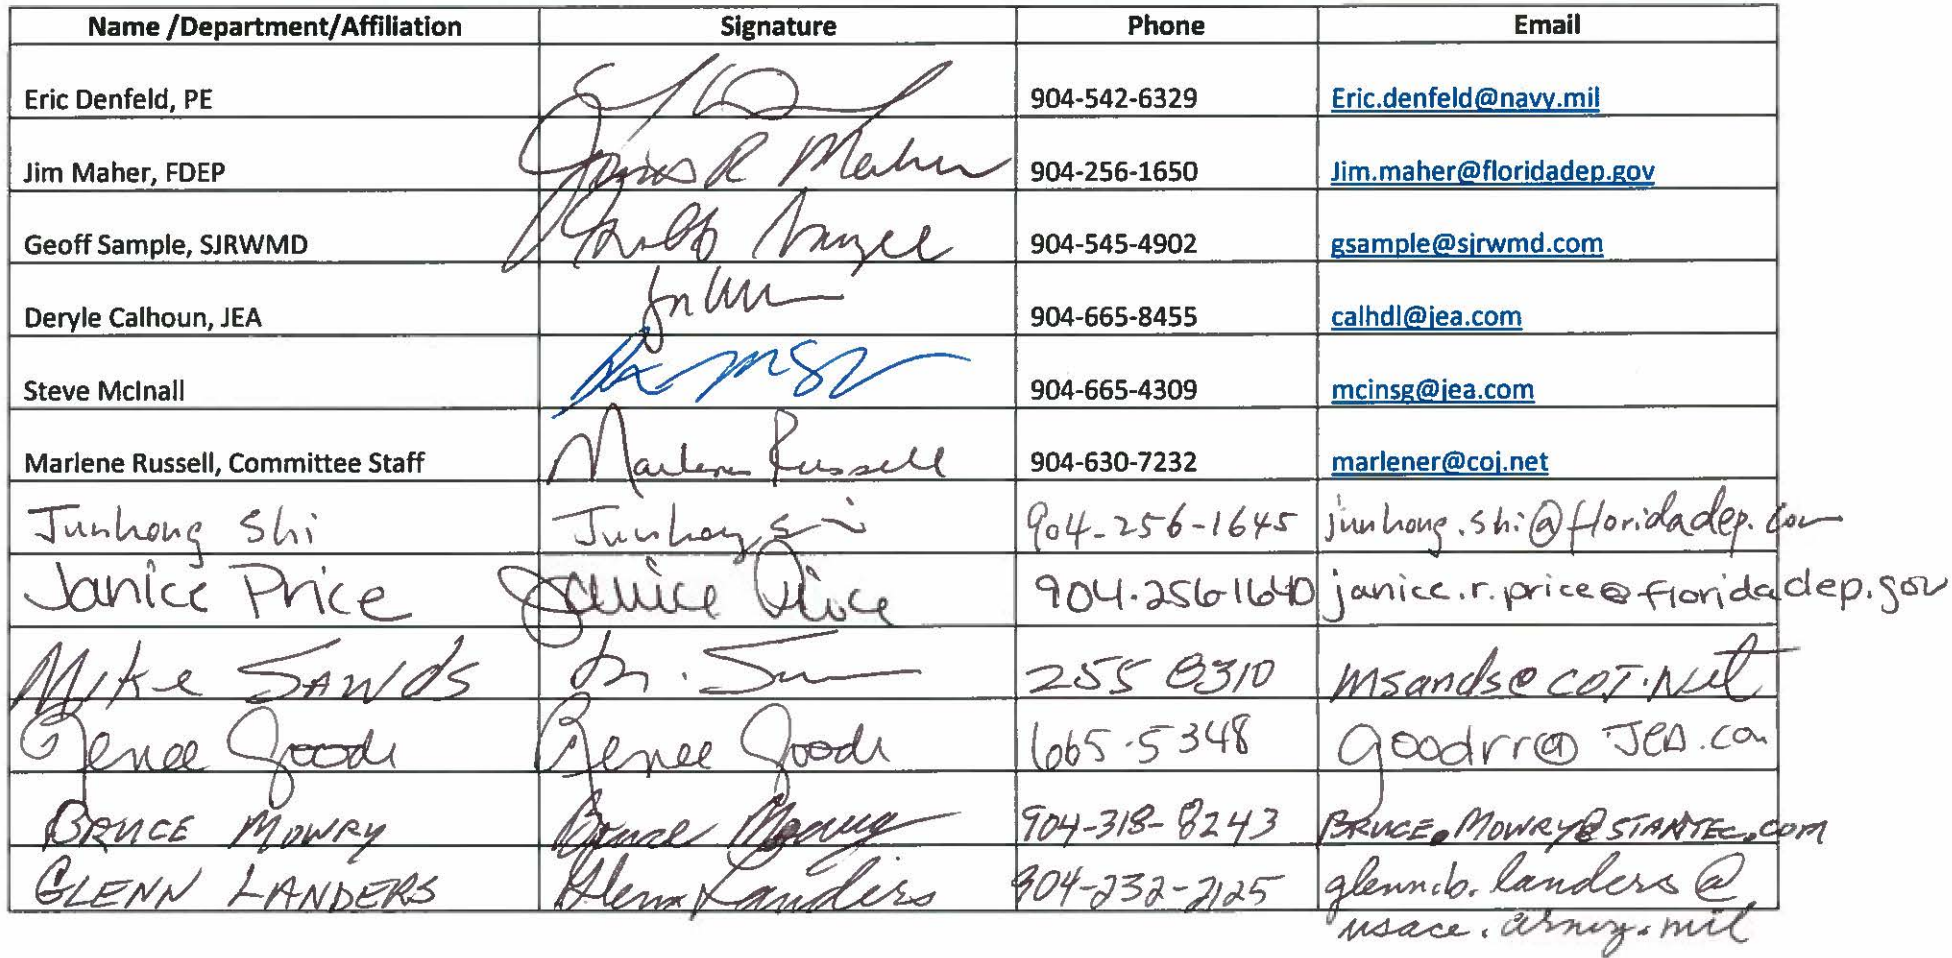 Name /Department/Affiliation Signature Phone Email
Eric Denfeld, PE 904-542-6329 Eric.denfeld@navy.mil
Jim Maher, FDEP James R Maher 904-256-1650 Jim.maher@floridadep.gov
Geoff Sample, SJRWMD 904-545-4902 gsample@sjrwmd.com
Deryle Calhoun, JEA 904-665-8455 calhdl@jea.com
Steve McInall 904-665-4309 mcinsg@jea.com
Marlene Russell, Committee Staff Marlene Russell 904-630-7232 marlener@coj.net
Junhong Shi Junhong Shi 904-256-1645 junhong.shi@floridadep.com
Janice Price Janice Price 904.256-1640 janice.r.price@floridadep.gov
Mike SANDS 255 8310 msands@COJ.Net
Renee Goode Renee Goode 665-5348 goodrr@JEA.com
BRUCE MOWRY Bruce Mowry 904-318-8243 BRUCE.MOWRY@STANTEC.COM
GLENN LANDERS Glenn Landers 904-232-2125 glenn.b.landers@
usace.army.mil